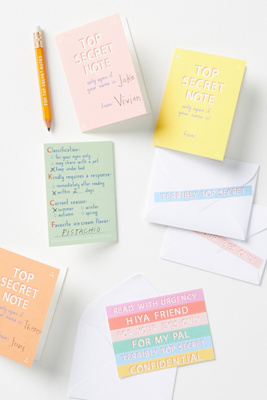 FOR TOP SECRET NOTES
TOP
SECRET
NOTE
only open if
your name is: Jake
from: Vivian
TOP
SECRET
NOTE
only open if
your name is:
from:
Classification:
for your eyes only
may share with a pal
X keep under bed
Kindly requires a response:
immediately after reading
X within 2 days
Current season:
X summer winter
autumn spring
Favorite ice-cream flavor:
PISTACHIO
TERRIBLY TOP SECRET
TOP
SECRET
NOTE
only open if
your name is:
from:
READ WITH URGENCY
HIYA FRIEND
FOR MY PAL
TERRIBLY TOP SECRET
CONFIDENTIAL